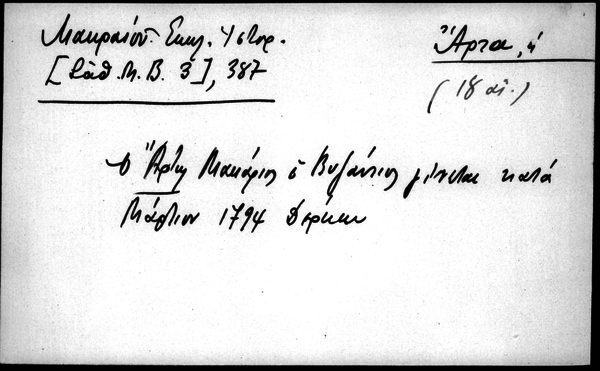 Μακραίου Εκκλ. Ιστορ.
[Σάθ. Μ. Β. 3], 387
Ἄρτα, ἡ
(18 αἰ.)
ὁ Ἄρτης Μακάριος ὁ Βυζάντιος γίνεται κατὰ
Μάρτιον 1794 Δέρκων